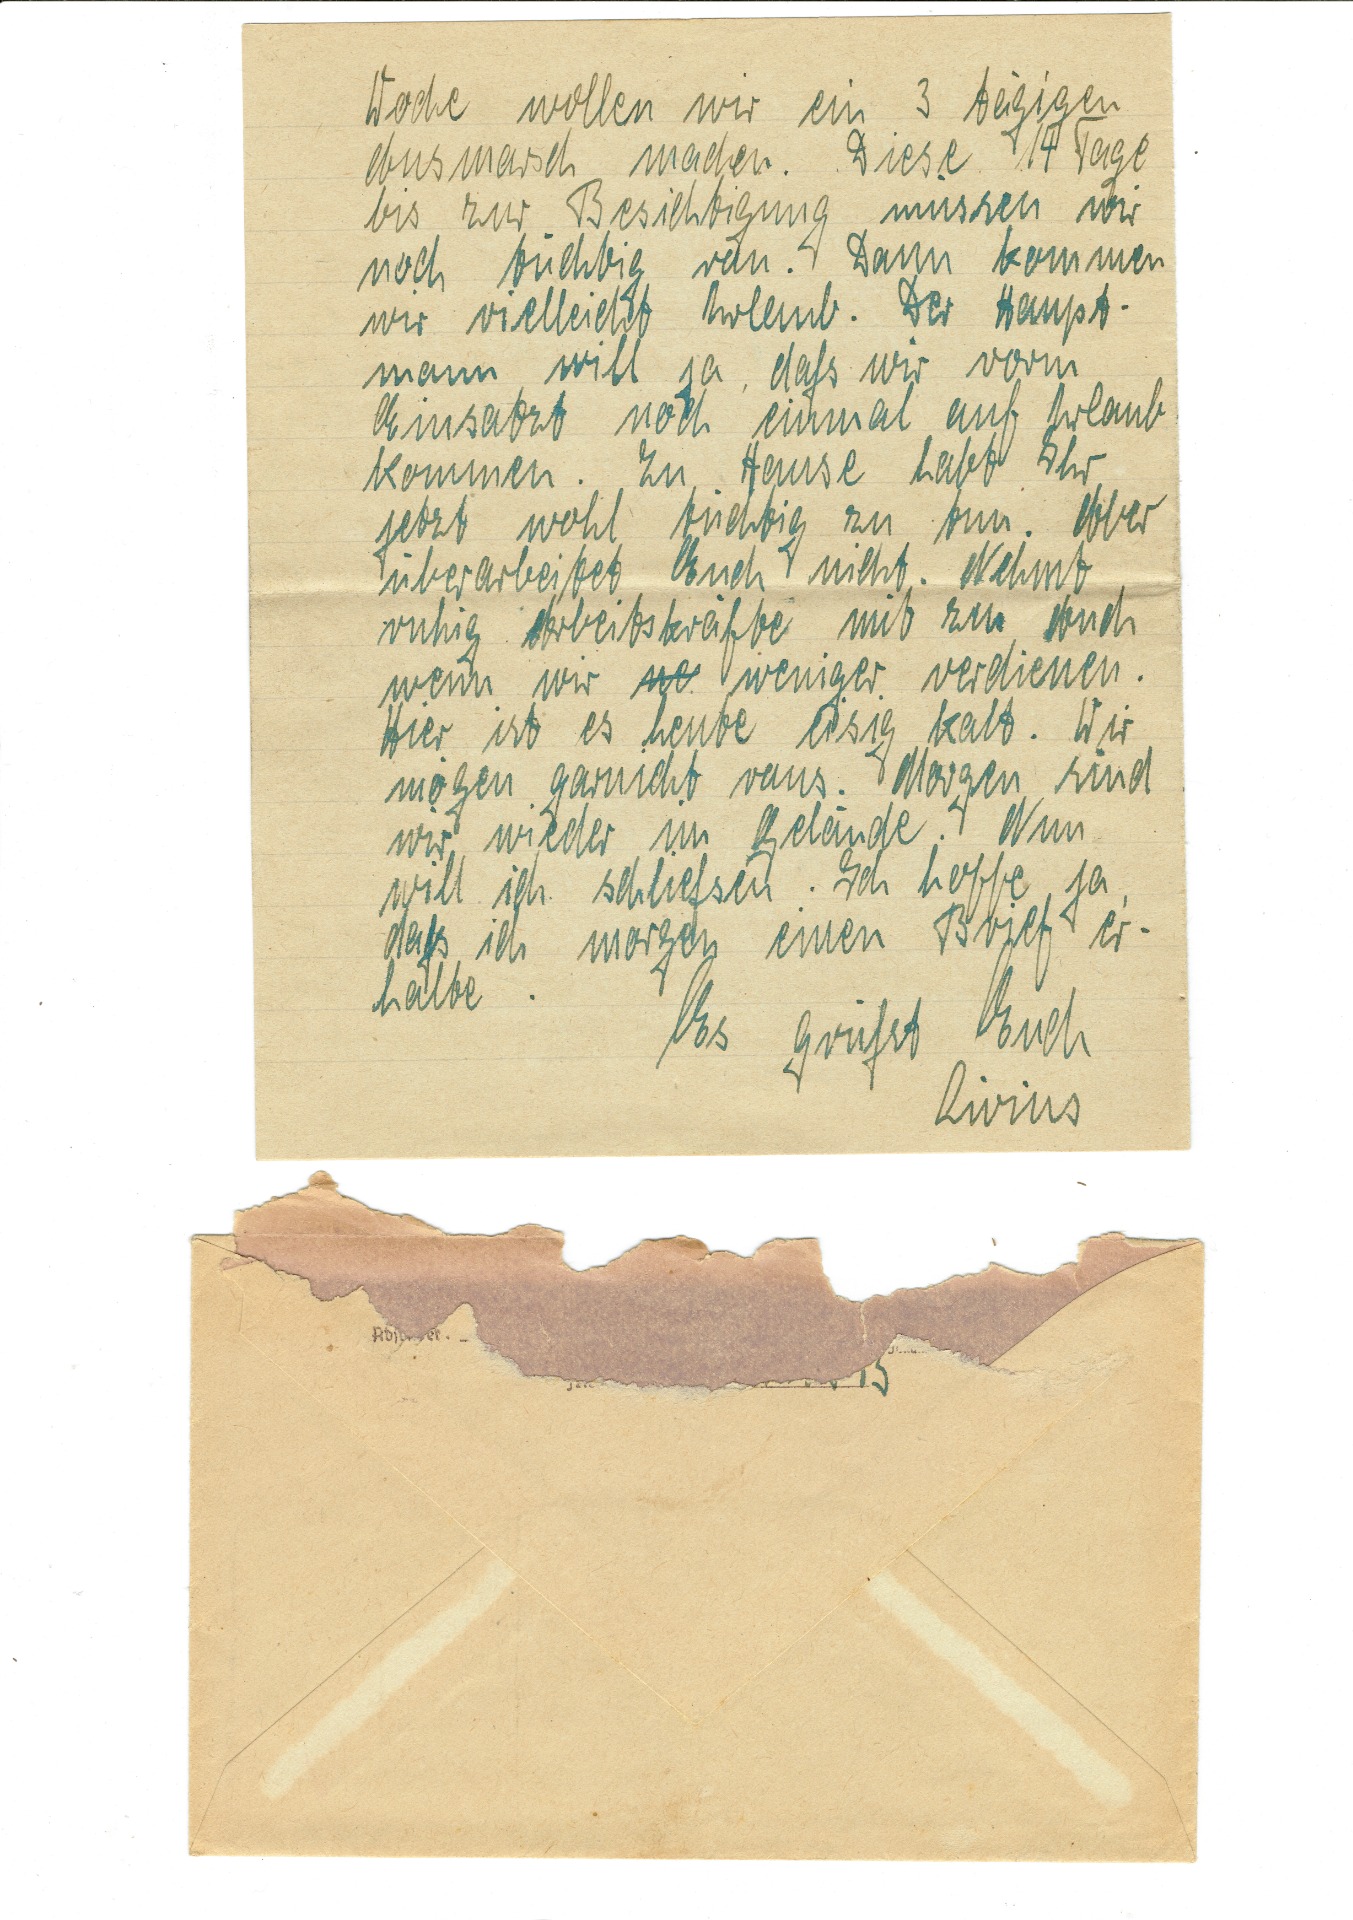 Woche wollen wir ein 3 tägigen
Ausmarsch machen. Diese 14 Tage
bis zur Besichtigung müssen wir
noch tüchtig ran. Dann kommen
wir vielleicht Urlaub. Der Haupt-
mann will ja, daß wir vorm
Einsatzt noch einmal auf Urlaub
kommen. Zu Hause habt Ihr
jetzt wohl tüchtig zu tun. Aber
überarbeitet Euch nicht. Nehmt
ruhig Arbeitskräfte mit zu, Auch
wenn wir weniger verdienen.
Hier ist es heute eisig kalt. Wir
mögen garnicht raus. Morgen sind
wir wieder im Gelände. Nun
will ich schließen. Ich hoffe ja,
daß ich morgen einen Brief er-
halte.
Es grüßt Euch
Livius
15